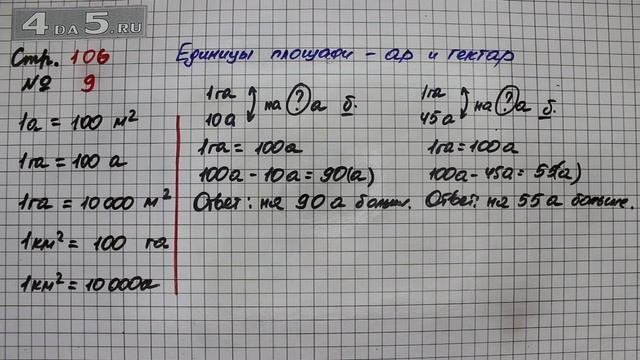 4DA5.RU
Стр. 106
№ 9
Единицы площади - ар и гектар
1а = 100 м²
1га = 100 а
1га = 10 000 м²
1км² = 100 га
1км² = 10 000а
1га
10а
на ? а б.
1га = 100а
100а - 10а = 90(а)
Ответ: на 90 а больш.
1га
45а
на ? а б.
1га = 100а
100а - 45а = 55(а)
Ответ: на 55 а больше.